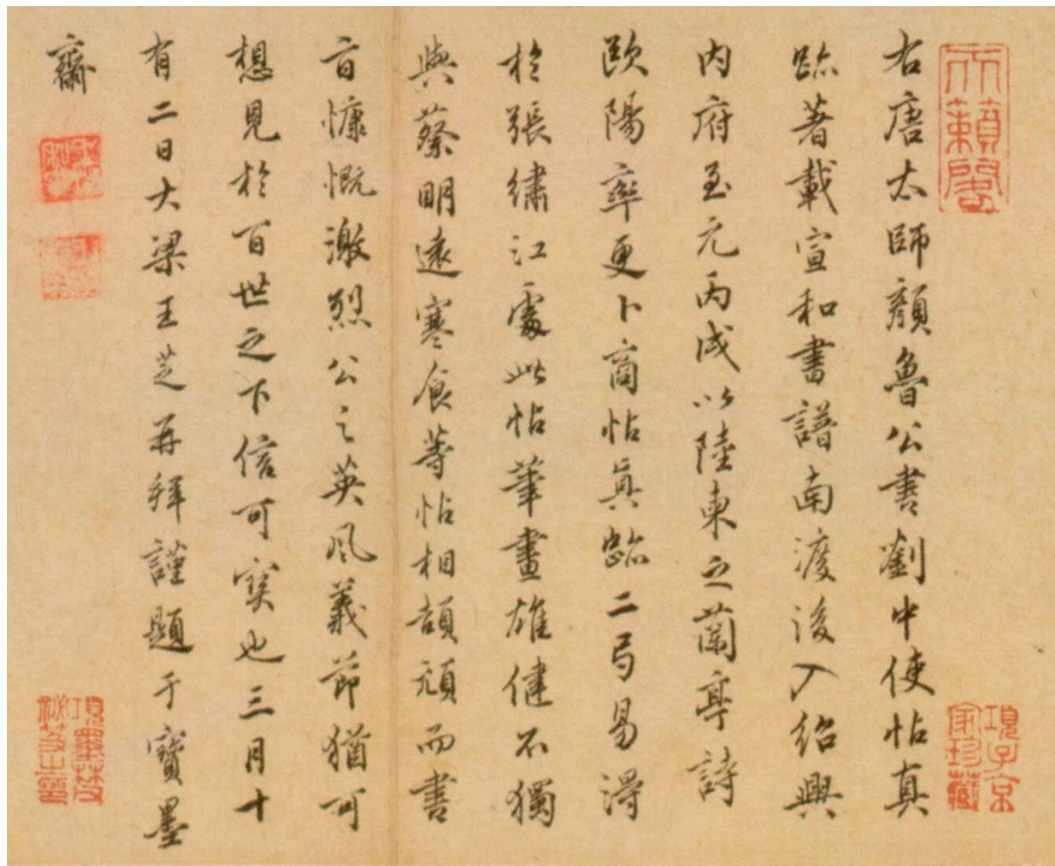 天籟閣
右唐太師顏魯公書劉中使帖真
跡著載宣和書譜南渡後入紹興
内府至元丙戌以陸柬之蘭亭詩
歐陽率更卜商帖真跡二弓易得
於張繡江處此帖筆畫雄健不獨
與蔡明遠寒食等帖相頡頏而書
旨慷慨激烈公之英風義節猶可
想見於百世之下信可寶也三月十
有二日大梁王芝再拜謹題于寶墨
齋
項子京
家珍藏
項墨林
祕笈之印